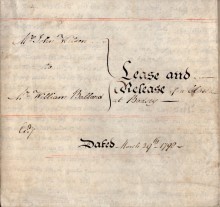 Mr John Wilson
to
Mr William Bullard
Lease and
Release of a
at
Copy
Dated March 29th 1790